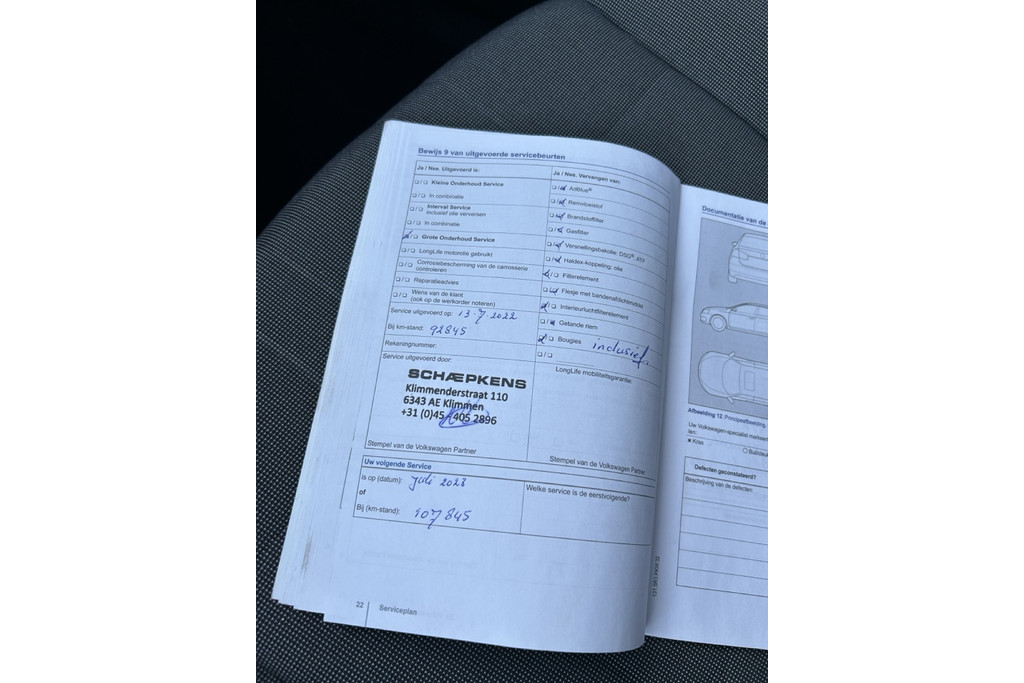 Bewijs 9 van uitgevoerde servicebeurten
Ja / Nee. Uitgevoerd is:
Kleine Onderhoud Service
In combinatie
Interval Service
inclusief olie verversen
In combinatie
Grote Onderhoud Service
LongLife motorolie gebruikt
Corrosiebescherming van de carrosserie
controleren
Reparatieadvies
Wens van de klant
(ook op de werkorder noteren)
Service uitgevoerd op: 13-7-2022
Bij km-stand: 92845
Rekeningnummer:
Service uitgevoerd door:
SCHÆPKENS
Klimmenderstraat 110
6343 AE Klimmen
+31 (0)45 405 2896
Stempel van de Volkswagen Partner
Ja / Nee. Vervangen van:
AdBlue®
Remvloeistof
Brandstoffilter
Gasfilter
Versnellingsbakolie: DSG®, ATF
Haldex-koppeling: olie
Filterelement
Flesje met bandenafdichtmiddel
Interieurluchtfilterelement
Getande riem
Bougies inclusief.
LongLife mobiliteitsgarantie:
Stempel van de Volkswagen Partner
Uw volgende Service
is op (datum): juli 2023
of
Bij (km-stand): 107845
Welke service is de eerstvolgende?
22 Serviceplan
Documentatie van de
Afbeelding 12 Principeafbeelding
Uw Volkswagen-specialist markeert
ten:
× Kras
Defecten geconstateerd?
Beschrijving van de defecten: